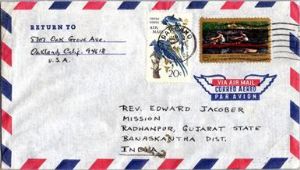 RETURN TO
5707 OAK GROVE AVE.
OAKLAND, CALIF. 94618
U.S.A.
AIR
MAIL
20c
VIA AIR MAIL
CORREO AEREO
PAR AVION
REV. EDWARD JACOBER
MISSION
RADHANPUR, GUJARAT STATE
BANASKANTHA DIST.
INDIA